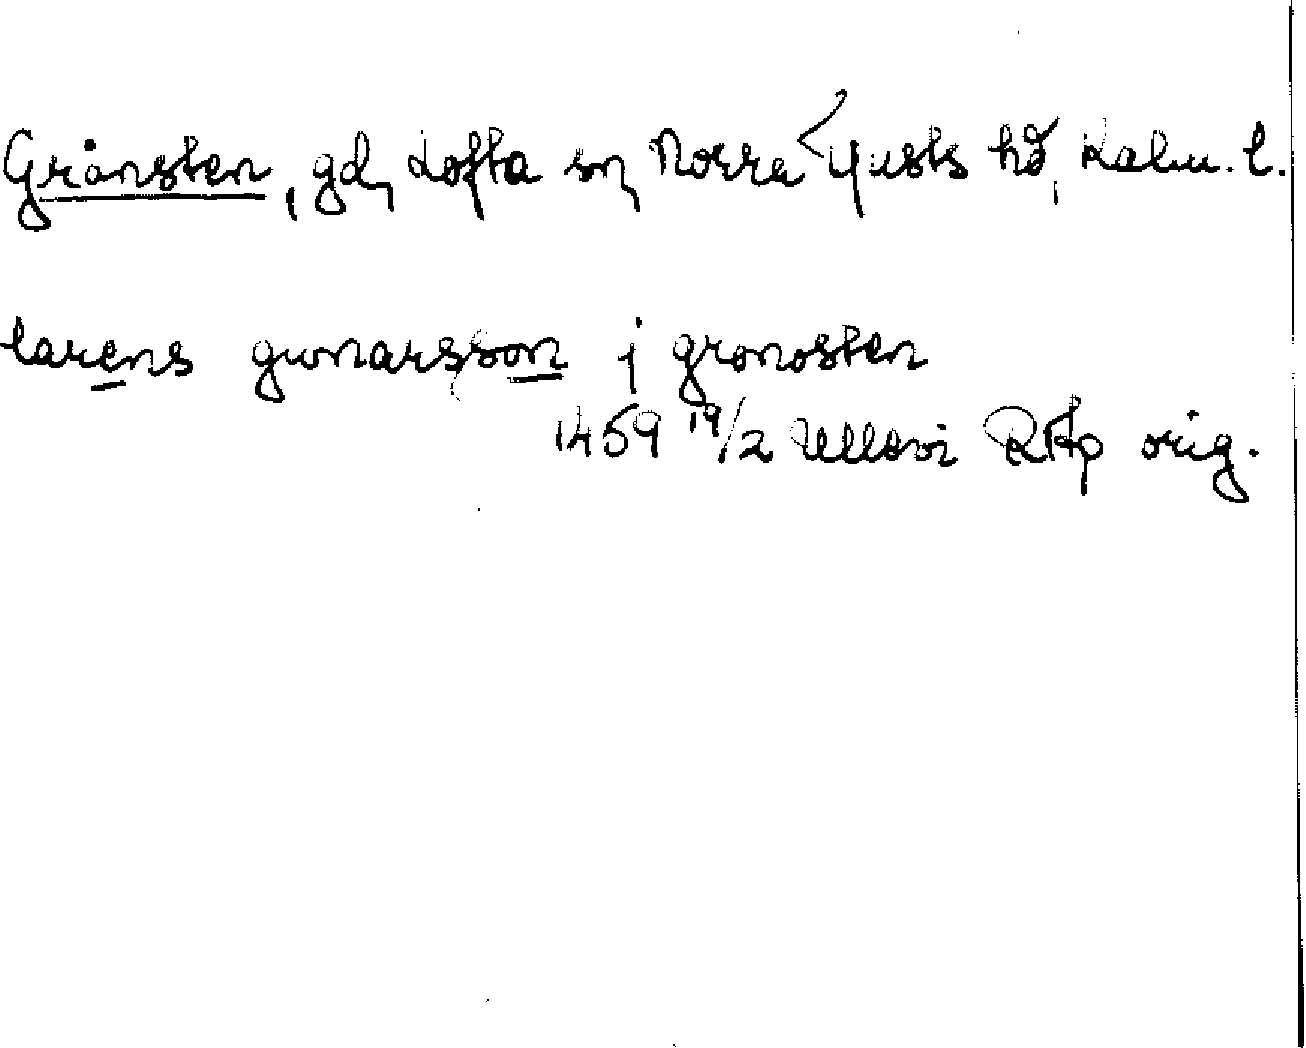 Grånsten, gd, Lofta sn, Norra Tjusts hd, Kalm. l.
larens gunnarsson j gronosten
1459 19/2 Ullevi RAp orig.